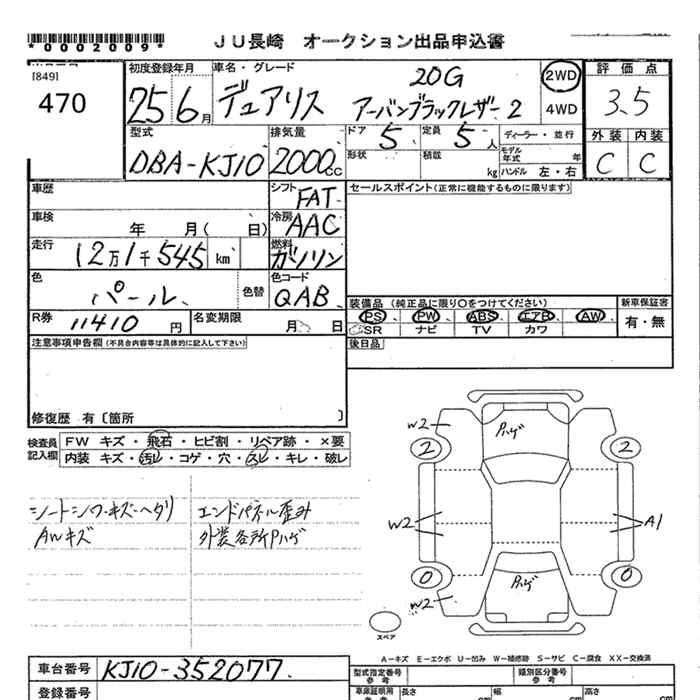 *0002009* ＪＵ長崎 オークション出品申込書
[849]
470
初度登録年月 車名・グレード 評価点
25 6月 デュアリス 20G アーバンブラックレザー2 2WD 4WD 3.5
型式 排気量 ドア 定員 ディーラー・並行 外装 内装
DBA-KJ10 2000cc 5 5人 C C
形状 積載 kg モデル年式 年 ハンドル 左・右
車歴 シフト FAT セールスポイント(正常に機能するものに限ります)
車検 年 月( 日) 冷房 AAC
走行 12万1千545km 燃料 ガソリン
色 パール 色替 色コード QAB
装備品(純正品に限り○をつけてください) 新車保証書
R券 11410円 名変期限 月 日 PS PW ABS エアB AW 有・無
SR ナビ TV カワ
注意事項申告欄(不具合内容等は具体的に記入して下さい) 後日品
修復歴 有〔箇所 〕
検査員記入欄 FW キズ・飛石・ヒビ割・リペア跡・×要
内装 キズ・汚レ・コゲ・穴・スレ・キレ・破レ
シートシワ・キズ・ヘタリ エンドパネル歪み
AWキズ 外装各所Pハゲ
W2 Pハゲ
2 2
W2 A1
0 Pハゲ 0
W2
スペア
A－キズ E－エクボ U－凹み W－補修跡 S－サビ C－腐食 XX－交換済
車台番号 KJ10-352077 型式指定番号 参考 類別区分番号 参考
登録番号 車庫証明用 参考 長さ cm 幅 cm 高さ cm